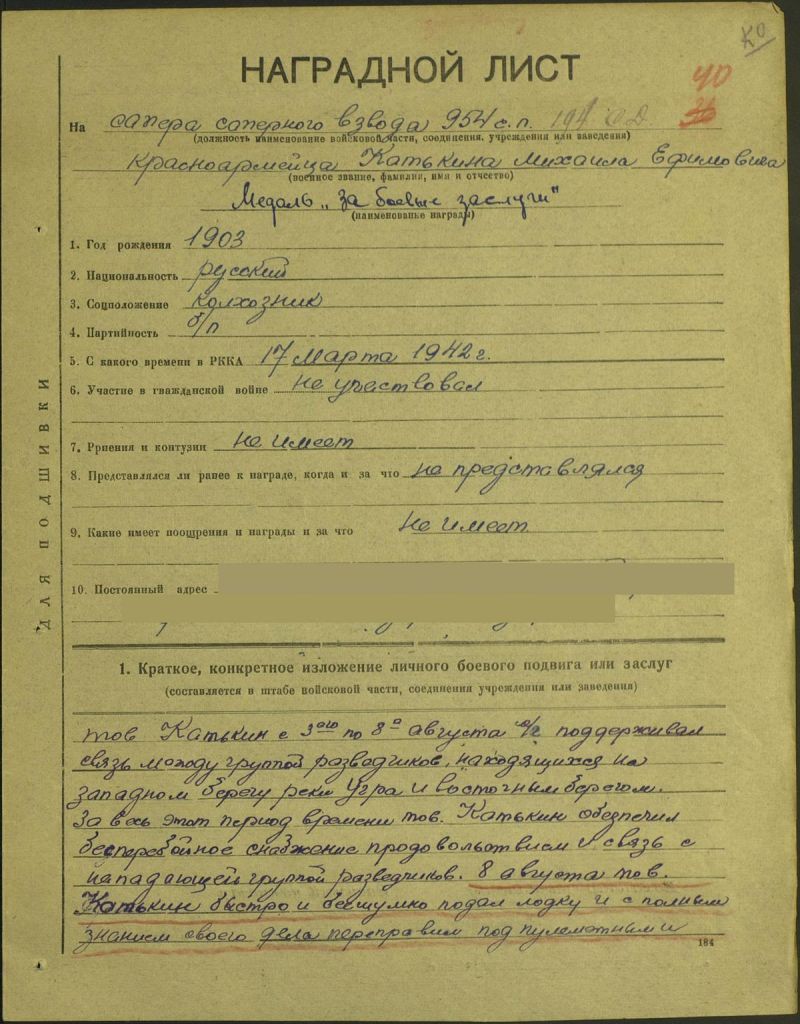 КО
НАГРАДНОЙ ЛИСТ
40
36
На сапера саперного взвода 954 с.п. 194 с.д.
(должность наименование войсковой части, соединения, учреждения или заведения)
Красноармейца Катькина Михаила Ефимовича
(военное звание, фамилия, имя и отчество)
Медаль „За боевые заслуги"
(наименование награды)
1. Год рождения 1903
2. Национальность русский
3. Соцположение колхозник
4. Партийность б/п
5. С какого времени в РККА 17 Марта 1942 г.
6. Участие в гважданской войне не участвовал
7. Ррнения и контузии не имеет
8. Представлялся ли ранее к награде, когда и за что не представлялся
9. Какие имеет поощрения и награды и за что не имеет
10. Постоянный адрес
ДЛЯ ПОДШИВКИ
1. Краткое, конкретное изложение личного боевого подвига или заслуг
(составляется в штабе войсковой части, соединения учреждения или заведения)
тов Катькин с 3ого по 8е августа с/г поддерживал
связь между группой разведчиков, находящихся на
западном берегу реки Угра и восточным берегом.
За весь этот период времени тов. Катькин обеспечил
бесперебойное снабжение продовольствием и связь с
нападающей группой разведчиков. 8 августа тов.
Катькин быстро и бесшумно подал лодку и с полным
знанием своего дела переправил под пулеметным и
184